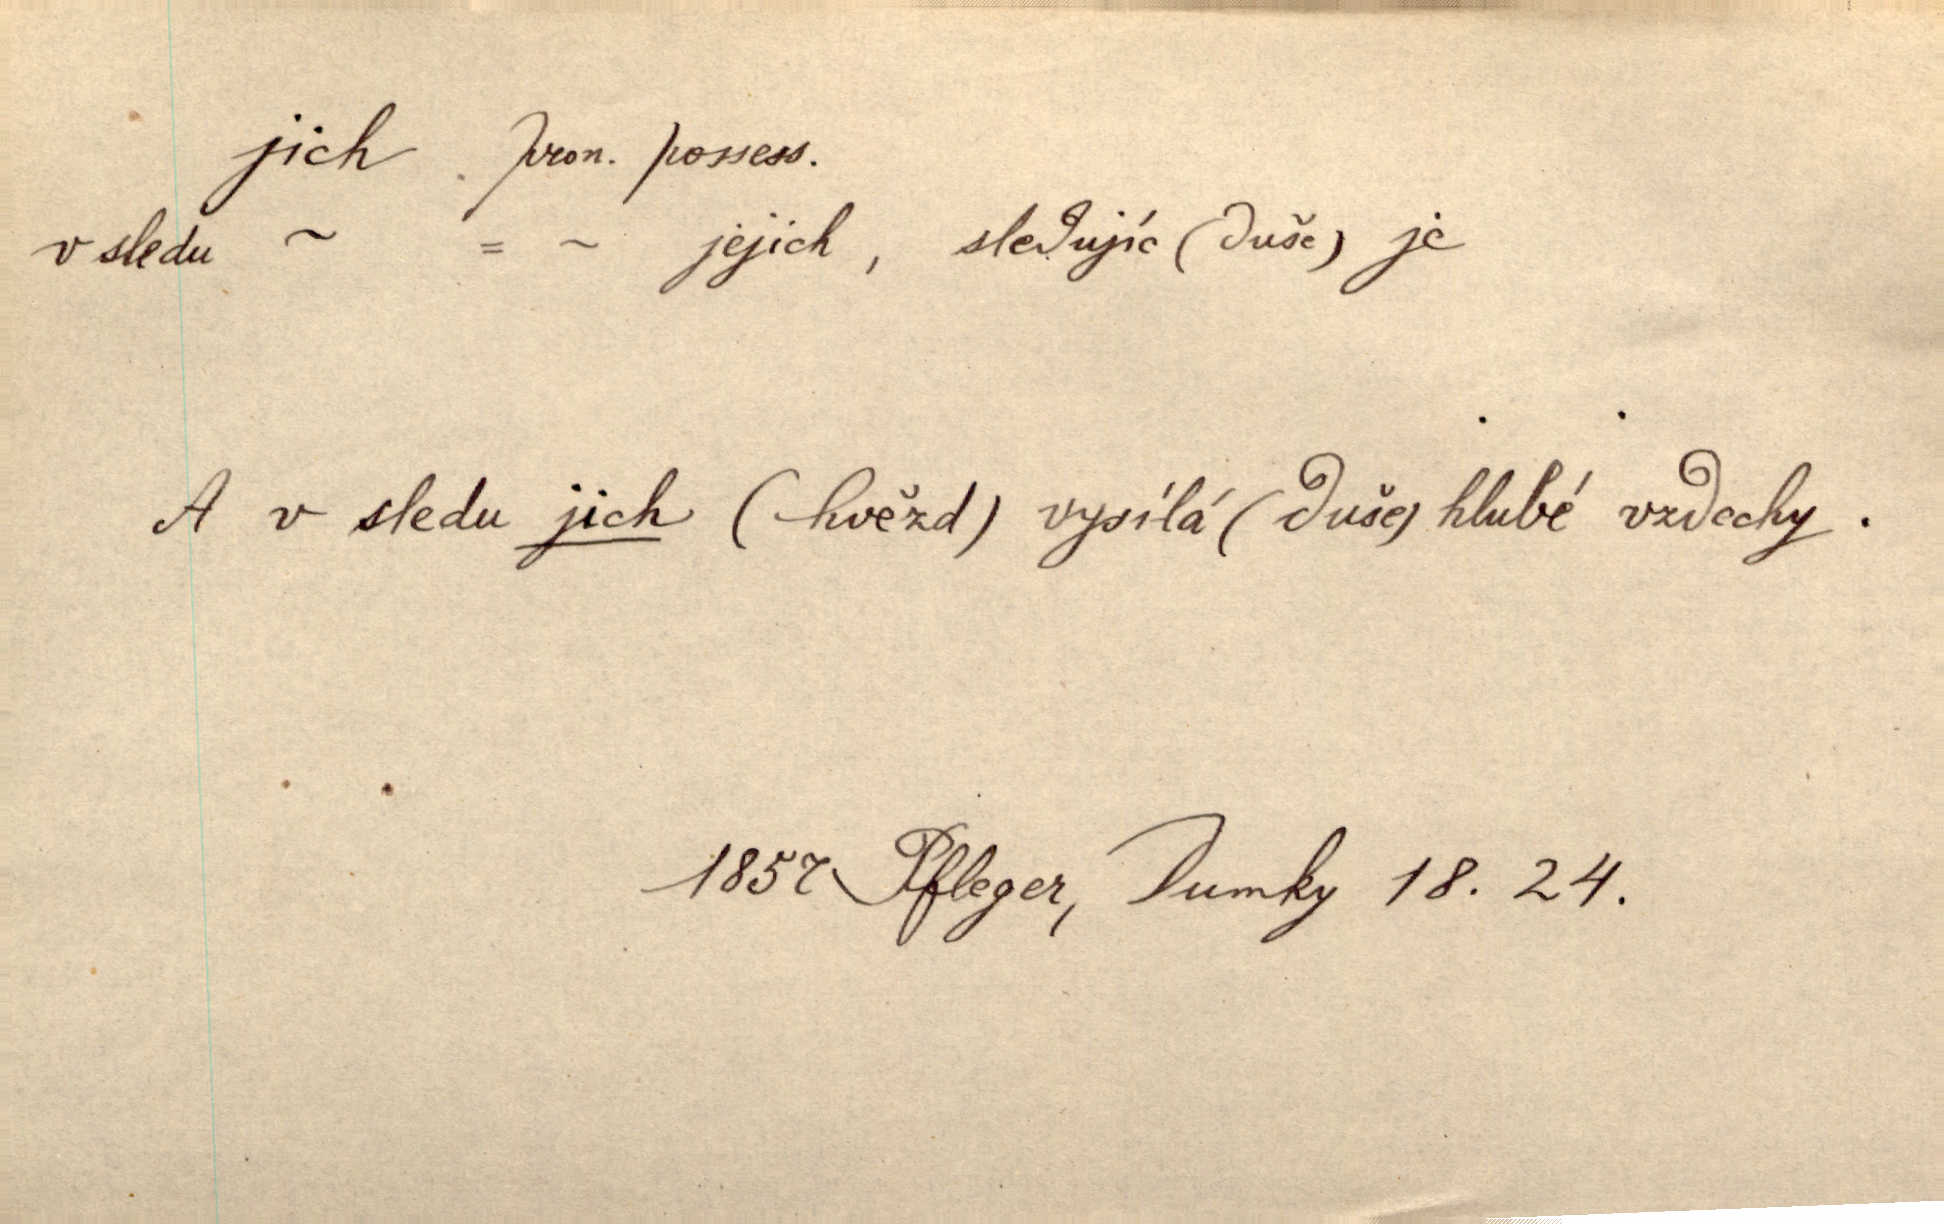 jich pron. possess.
v sledu ~ = ~ jejich, sledujíc (duše) je
A v sledu jich (hvězd) vysílá (duše) hlubé vzdechy.
1857 Pfleger, Dumky 18. 24.